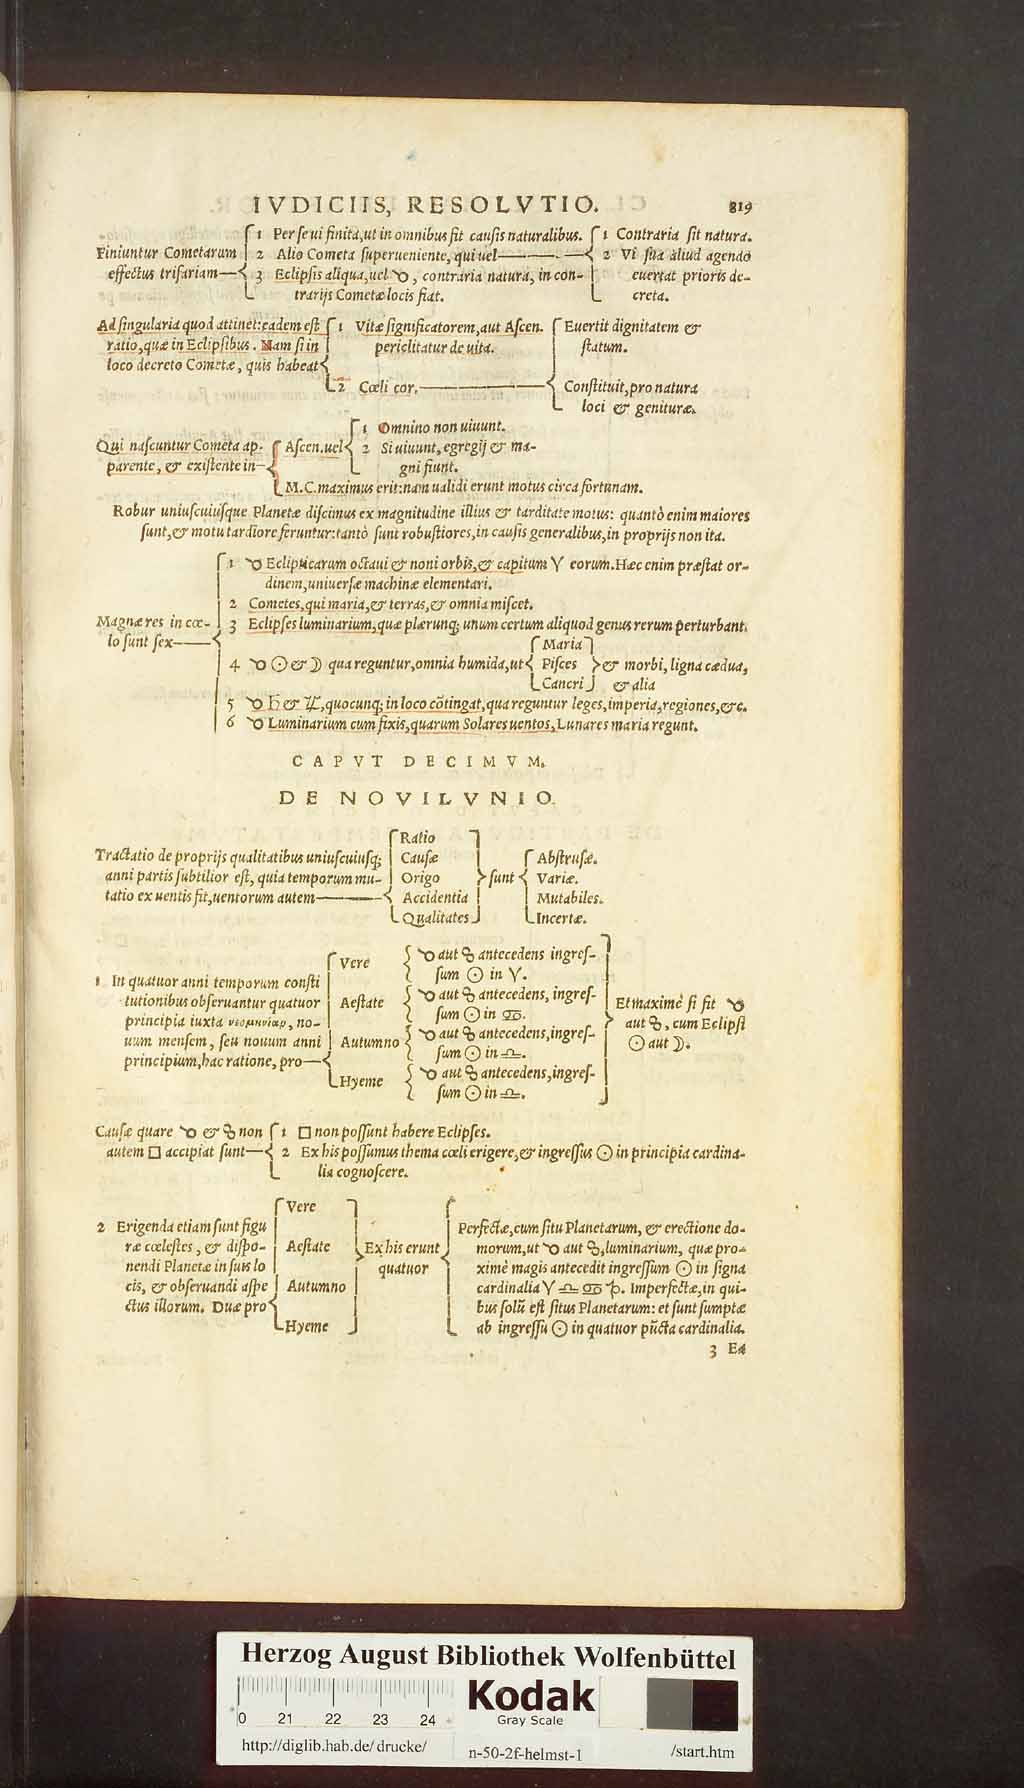 IVDICIIS, RESOLVTIO. 819
Finiuntur Cometarum effectus trifariam—
1 Per se ui finita, ut in omnibus fit causis naturalibus.
2 Alio Cometa superueniente, qui uel—
1 Contraria sit natura.
2 Vi sua aliud agendo
euertat prioris de-
creta.
3 Eclipsis aliqua, uel ☌, contraria natura, in con-
trarijs Cometæ locis fiat.
Ad singularia quod attinet: eadem est
ratio, quæ in Eclipsibus. Nam si in
loco decreto Cometæ, quis habeat
1 Vitæ significatorem, aut Ascen.
periclitatur de uita.
2 Cœli cor.—
Euertit dignitatem &
statum.
Constituit, pro natura
loci & genituræ.
Qui nascuntur Cometa ap-
parente, & existente in—
Ascen. uel
1 Omnino non uiuunt.
2 Si uiuunt, egregij & ma-
gni fiunt.
M.C. maximus erit: nam ualidi erunt motus circa fortunam.
Robur uniuscuiusque Planetæ discimus ex magnitudine illius & tarditate motus: quantò enim maiores
sunt, & motu tardiore feruntur: tantò sunt robustiores, in causis generalibus, in proprijs non ita.
Magnæ res in cœ-
lo sunt sex—
1 ☌ Eclipticarum octaui & noni orbis, & capitum ♈ eorum. Hæc enim præstat or-
dinem, uniuersæ machinæ elementari.
2 Cometes, qui maria, & terras, & omnia miscet.
3 Eclipses luminarium, quæ plærunq; unum certum aliquod genus rerum perturbant.
4 ☌ ☉ & ☽ qua reguntur, omnia humida, ut
Maria
Pisces
Cancri
& morbi, ligna cædua,
& alia
5 ☌ ♄ & ♃, quocunq; in loco cõtingat, qua reguntur leges, imperia, regiones, &c.
6 ☌ Luminarium cum fixis, quarum Solares uentos, Lunares maria regunt.
CAPVT DECIMVM.
DE NOVILVNIO.
Tractatio de proprijs qualitatibus uniuscuiusq;
anni partis subtilior est, quia temporum mu-
tatio ex uentis fit, uentorum autem—
Ratio
Causæ
Origo
Accidentia
Qualitates
sunt
Abstrusæ.
Variæ.
Mutabiles.
Incertæ.
1 In quatuor anni temporum consti
tutionibus obseruantur quatuor
principia iuxta νεομηνίαρ, no-
uum mensem, seu nouum anni
principium, hac ratione, pro—
Vere
☌ aut ☍ antecedens ingres-
sum ☉ in ♈.
Aestate
☌ aut ☍ antecedens, ingres-
sum ☉ in ♋.
Autumno
☌ aut ☍ antecedens, ingres-
sum ☉ in ♎.
Hyeme
☌ aut ☍ antecedens, ingres-
sum ☉ in ♎.
Et maximè si fit ☌
aut ☍, cum Eclipsi
☉ aut ☽.
Causæ quare ☌ & ☍ non
autem □ accipiat sunt—
1 □ non possunt habere Eclipses.
2 Ex his possumus thema cœli erigere, & ingressus ☉ in principia cardina-
lia cognoscere.
2 Erigenda etiam sunt figu
ræ cœlestes, & dispo-
nendi Planetæ in suis lo
cis, & obseruandi aspe
ctus illorum. Duæ pro
Vere
Aestate
Autumno
Hyeme
Ex his erunt
quatuor
Perfectæ, cum situ Planetarum, & erectione do-
morum, ut ☌ aut ☍, luminarium, quæ pro-
ximè magis antecedit ingressum ☉ in signa
cardinalia ♈ ♎ ♋ ♑. Imperfectæ, in qui-
bus solũ est situs Planetarum: et sunt sumptæ
ab ingressu ☉ in quatuor pũcta cardinalia.
3 Ea
Herzog August Bibliothek Wolfenbüttel
0 21 22 23 24
Kodak
Gray Scale
http://diglib.hab.de/drucke/ n-50-2f-helmst-1 /start.htm